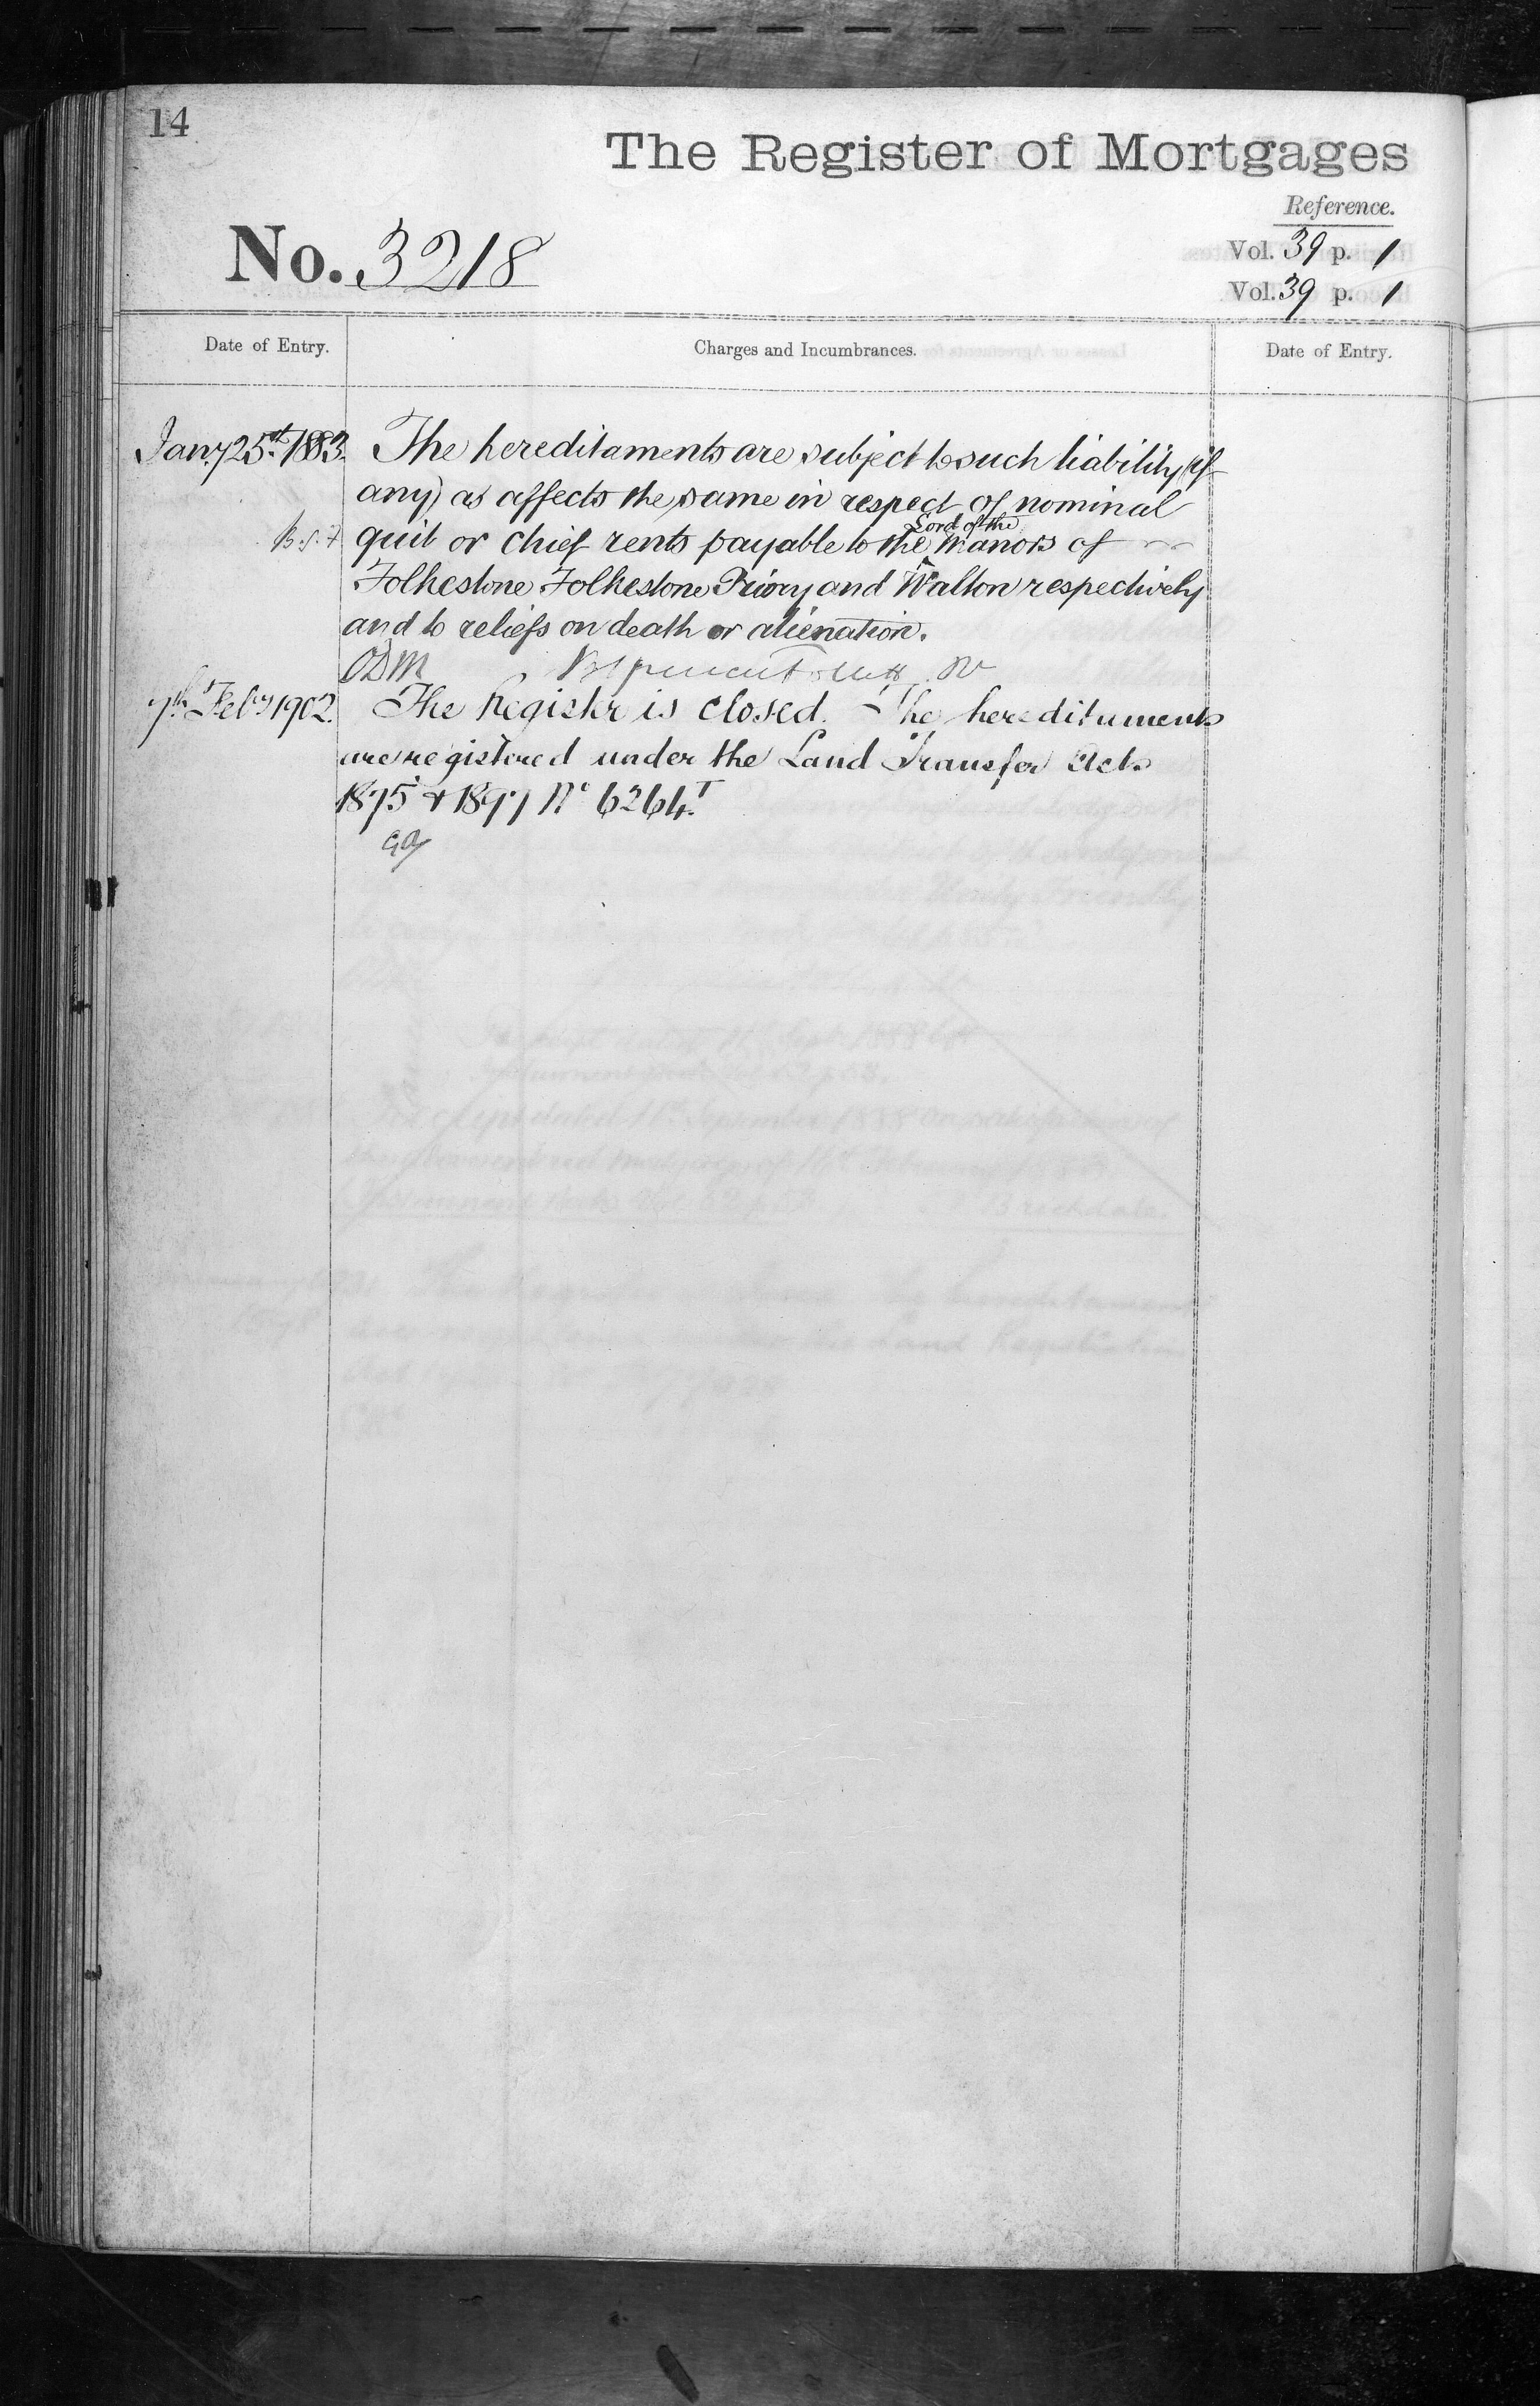 14
The Register of Mortgages
Reference.
No. 3218
Vol. 39 p. 1
Vol. 39 p. 1
Date of Entry.
Charges and Incumbrances.
Date of Entry.
Jany 25th 1883.
The hereditaments are subject to such liability (if
any) as affects the same in respect of nominal
quit or chief rents payable to the Lord of the Manors of
Folkestone Folkestone Priory and Walton respectively
and to reliefs on death or alienation.
ODM
7th Feby 1902.
The Register is closed. The hereditaments
are registered under the Land Transfer Acts
1875 & 1897 No 6264.